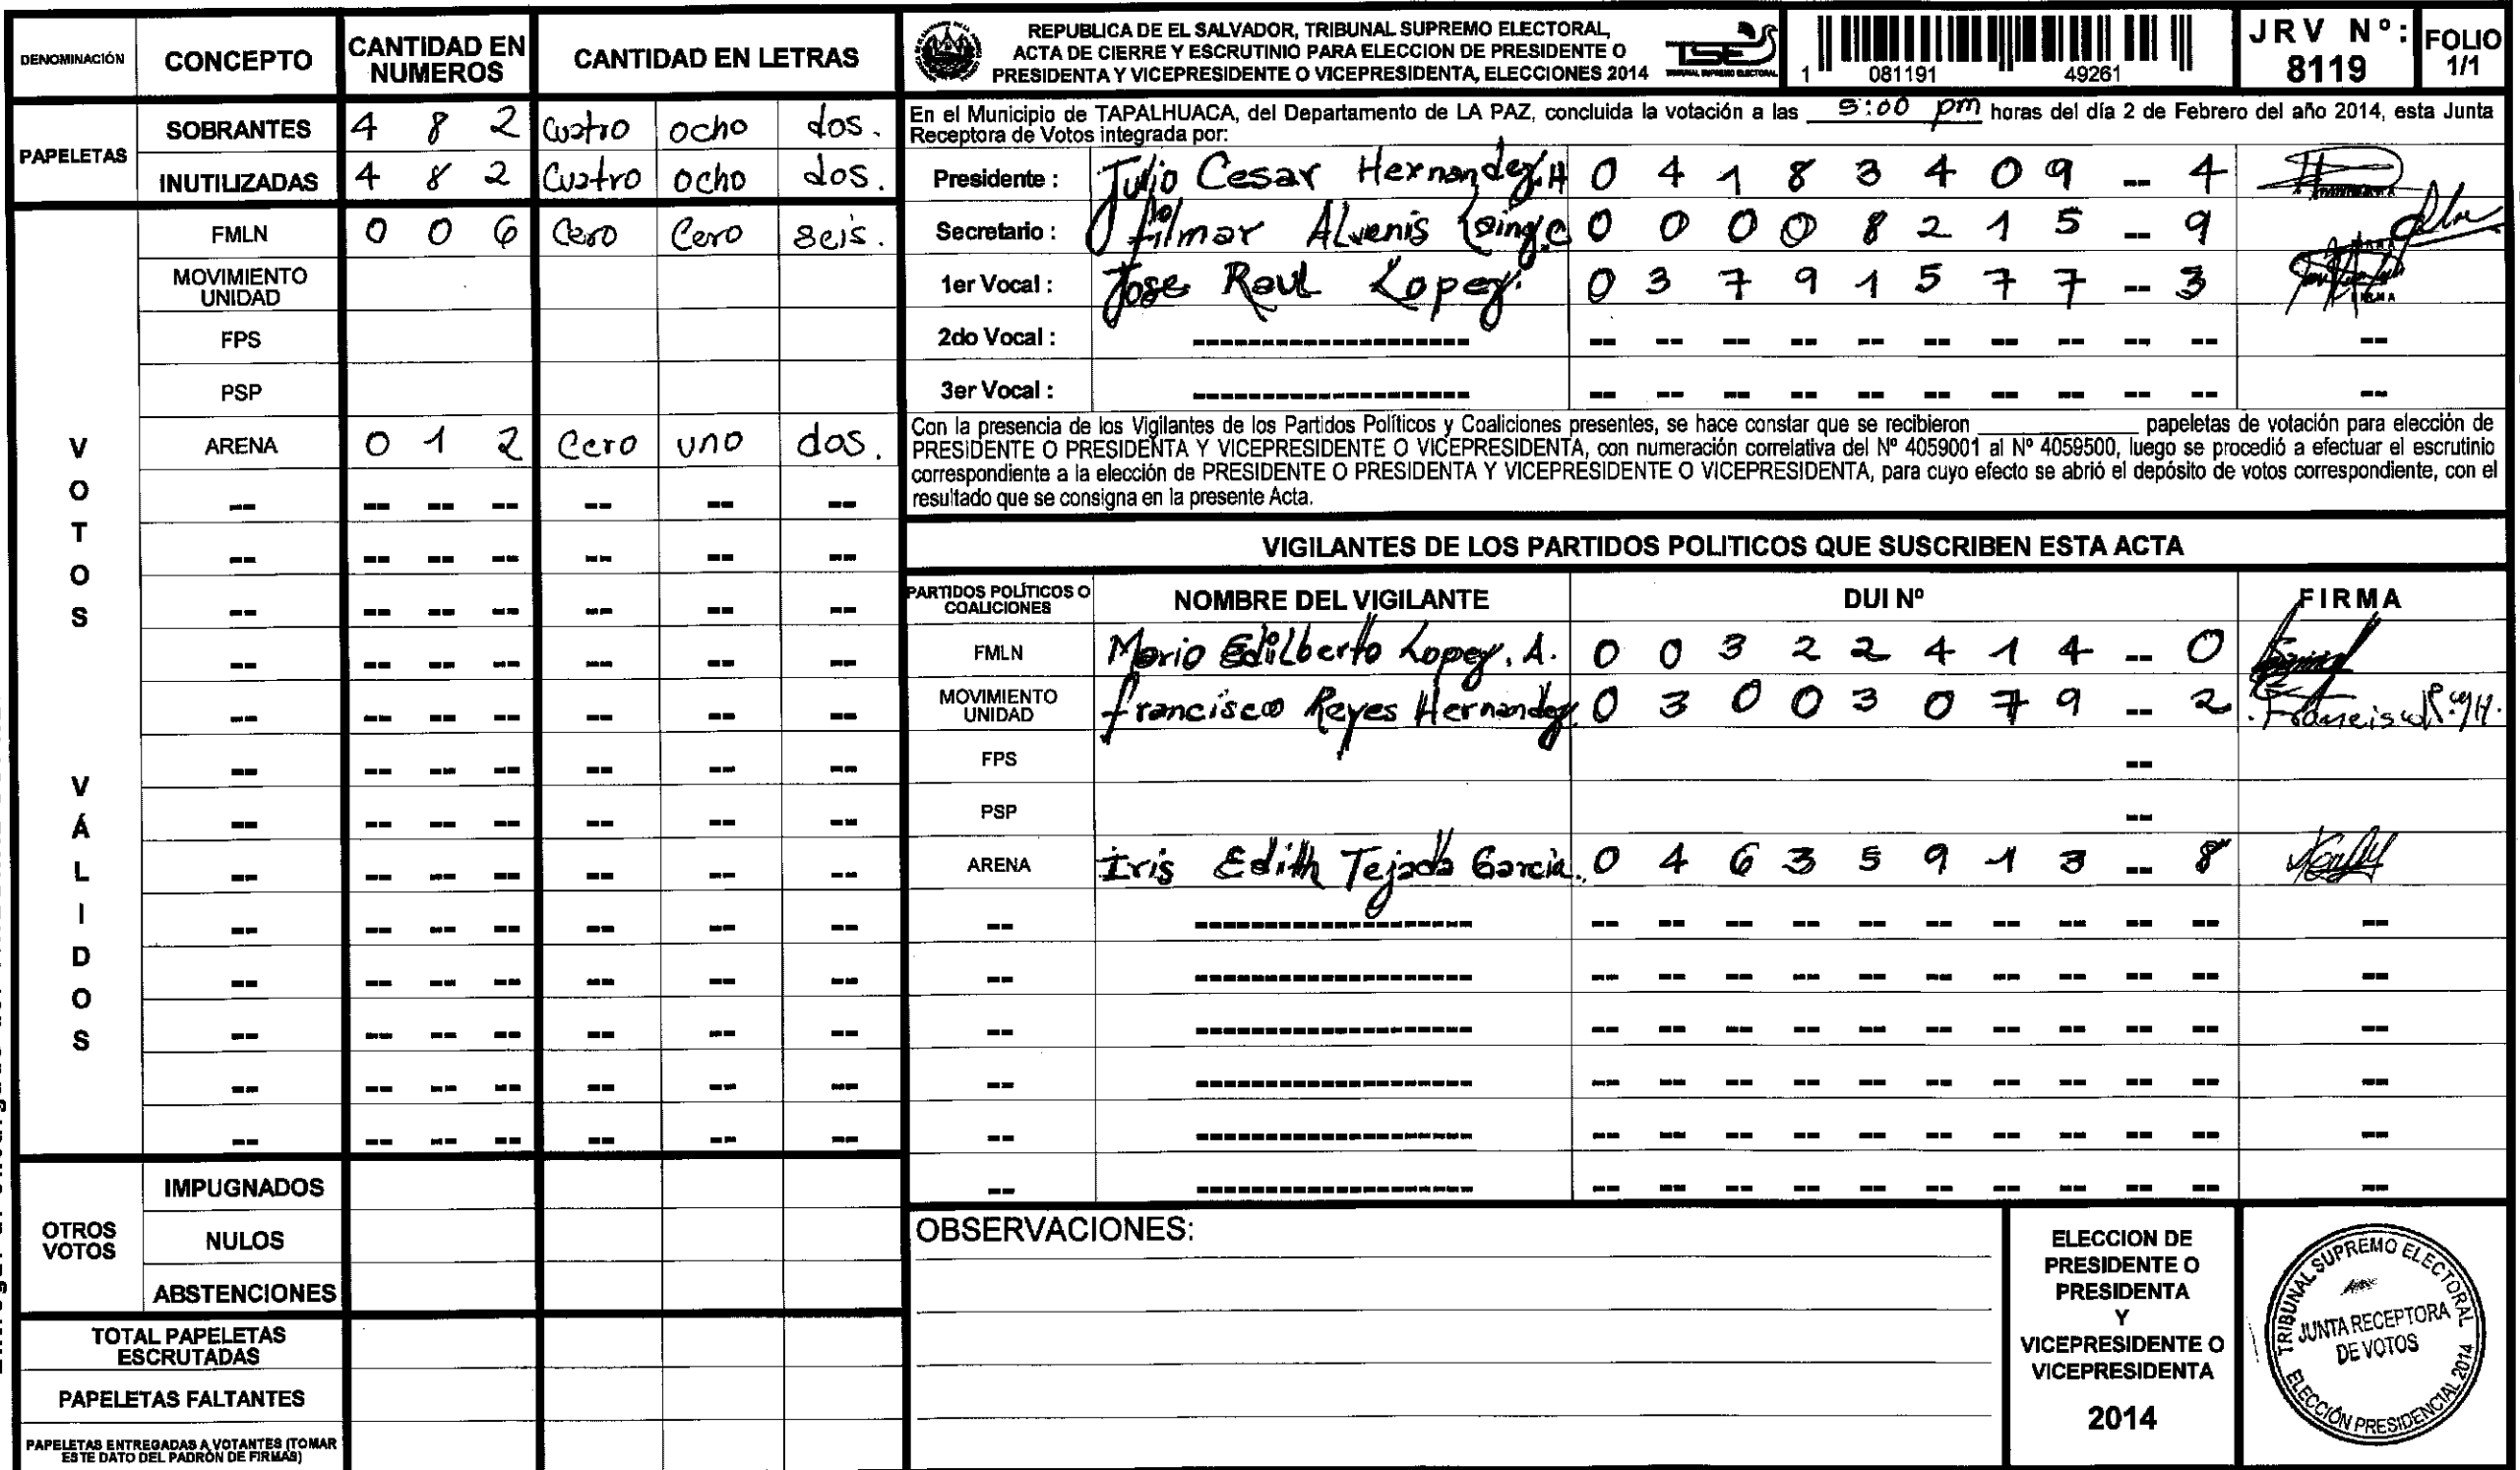 DENOMINACIÓN CONCEPTO CANTIDAD EN NUMEROS CANTIDAD EN LETRAS
PAPELETAS
SOBRANTES 4 8 2 Cuatro ocho dos.
INUTILIZADAS 4 8 2 Cuatro ocho dos.
VOTOS VÁLIDOS
FMLN 0 0 6 Cero Cero seis.
MOVIMIENTO UNIDAD
FPS
PSP
ARENA 0 1 2 Cero uno dos.
OTROS VOTOS
IMPUGNADOS
NULOS
ABSTENCIONES
TOTAL PAPELETAS ESCRUTADAS
PAPELETAS FALTANTES
PAPELETAS ENTREGADAS A VOTANTES (TOMAR ESTE DATO DEL PADRÓN DE FIRMAS)
REPUBLICA DE EL SALVADOR, TRIBUNAL SUPREMO ELECTORAL,
ACTA DE CIERRE Y ESCRUTINIO PARA ELECCION DE PRESIDENTE O
PRESIDENTA Y VICEPRESIDENTE O VICEPRESIDENTA, ELECCIONES 2014
TSE
TRIBUNAL SUPREMO ELECTORAL
1 081191 49261
JRV Nº: 8119
FOLIO 1/1
En el Municipio de TAPALHUACA, del Departamento de LA PAZ, concluida la votación a las 5:00 pm horas del día 2 de Febrero del año 2014, esta Junta
Receptora de Votos integrada por:
Presidente : Julio Cesar Hernandez. H 0 4 1 8 3 4 0 9 -- 4
Secretario : Filmar ALvenis 0 0 0 0 8 2 1 5 -- 9
1er Vocal : Jose Raul Lopez. 0 3 7 9 1 5 7 7 -- 3
2do Vocal :
3er Vocal :
Con la presencia de los Vigilantes de los Partidos Políticos y Coaliciones presentes, se hace constar que se recibieron ________ papeletas de votación para elección de
PRESIDENTE O PRESIDENTA Y VICEPRESIDENTE O VICEPRESIDENTA, con numeración correlativa del Nº 4059001 al Nº 4059500, luego se procedió a efectuar el escrutinio
correspondiente a la elección de PRESIDENTE O PRESIDENTA Y VICEPRESIDENTE O VICEPRESIDENTA, para cuyo efecto se abrió el depósito de votos correspondiente, con el
resultado que se consigna en la presente Acta.
VIGILANTES DE LOS PARTIDOS POLITICOS QUE SUSCRIBEN ESTA ACTA
PARTIDOS POLÍTICOS O COALICIONES NOMBRE DEL VIGILANTE DUI Nº FIRMA
FMLN Mario Edilberto Lopez. A. 0 0 3 2 2 4 1 4 -- 0
MOVIMIENTO UNIDAD Francisco Reyes Hernandez 0 3 0 0 3 0 7 9 -- 2
FPS --
PSP --
ARENA Iris Edith Tejada Garcia. 0 4 6 3 5 9 1 3 -- 8
OBSERVACIONES:
ELECCION DE
PRESIDENTE O
PRESIDENTA
Y
VICEPRESIDENTE O
VICEPRESIDENTA
2014
TRIBUNAL SUPREMO ELECTORAL
JUNTA RECEPTORA
DE VOTOS
ELECCIÓN PRESIDENCIAL 2014